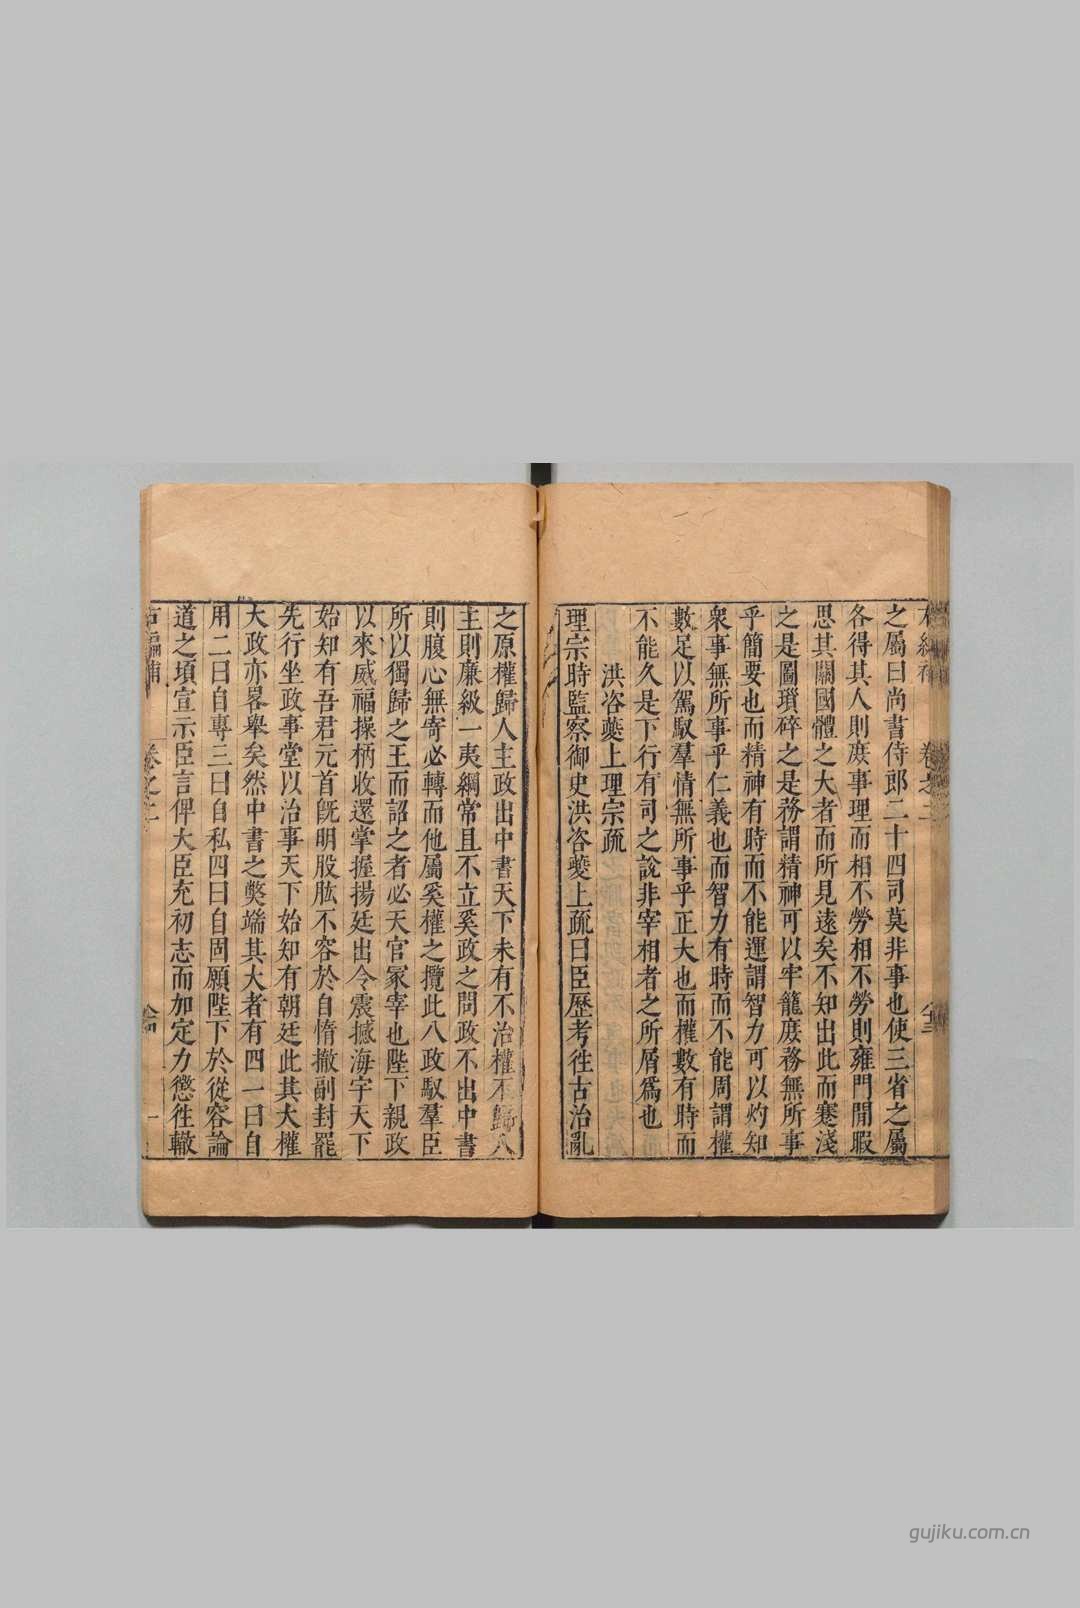 之屬曰尚書侍郎二十四司莫非事也使三省之屬
各得其人則庻事理而相不勞相不勞則雍門閒暇
思其關國體之大者而所見遠矣不知出此而蹇淺
之是圖瑣碎之是務謂精神可以牢籠庻務無所事
乎簡要也而精神有時而不能運謂智力可以灼知
衆事無所事乎仁義也而智力有時而不能周謂權
數足以駕馭羣情無所事乎正大也而權數有時而
不能久是下行有司之說非宰相者之所屑爲也
洪咨夔上理宗疏
理宗時監察御史洪咨夔上疏曰臣歷考徃古治亂
之原權歸人主政出中書天下未有不治權不歸人
主則廉級一夷綱常且不立奚政之問政不出中書
則腹心無寄必轉而他屬奚權之攬此八政馭羣臣
所以獨歸之王而詔之者必天官冢宰也陛下親政
以來威福操柄收還掌握揚廷出令震撼海宇天下
始知有吾君元首旣明股肱不容於自惰撤副封罷
先行坐政事堂以治事天下始知有朝廷此其大權
大政亦畧舉矣然中書之獘端其大者有四一曰自
用二曰自專三曰自私四曰自固願陛下於從容論
道之頃宣示臣言俾大臣充初志而加定力懲徃轍
卷之二
gujiku.com.cn